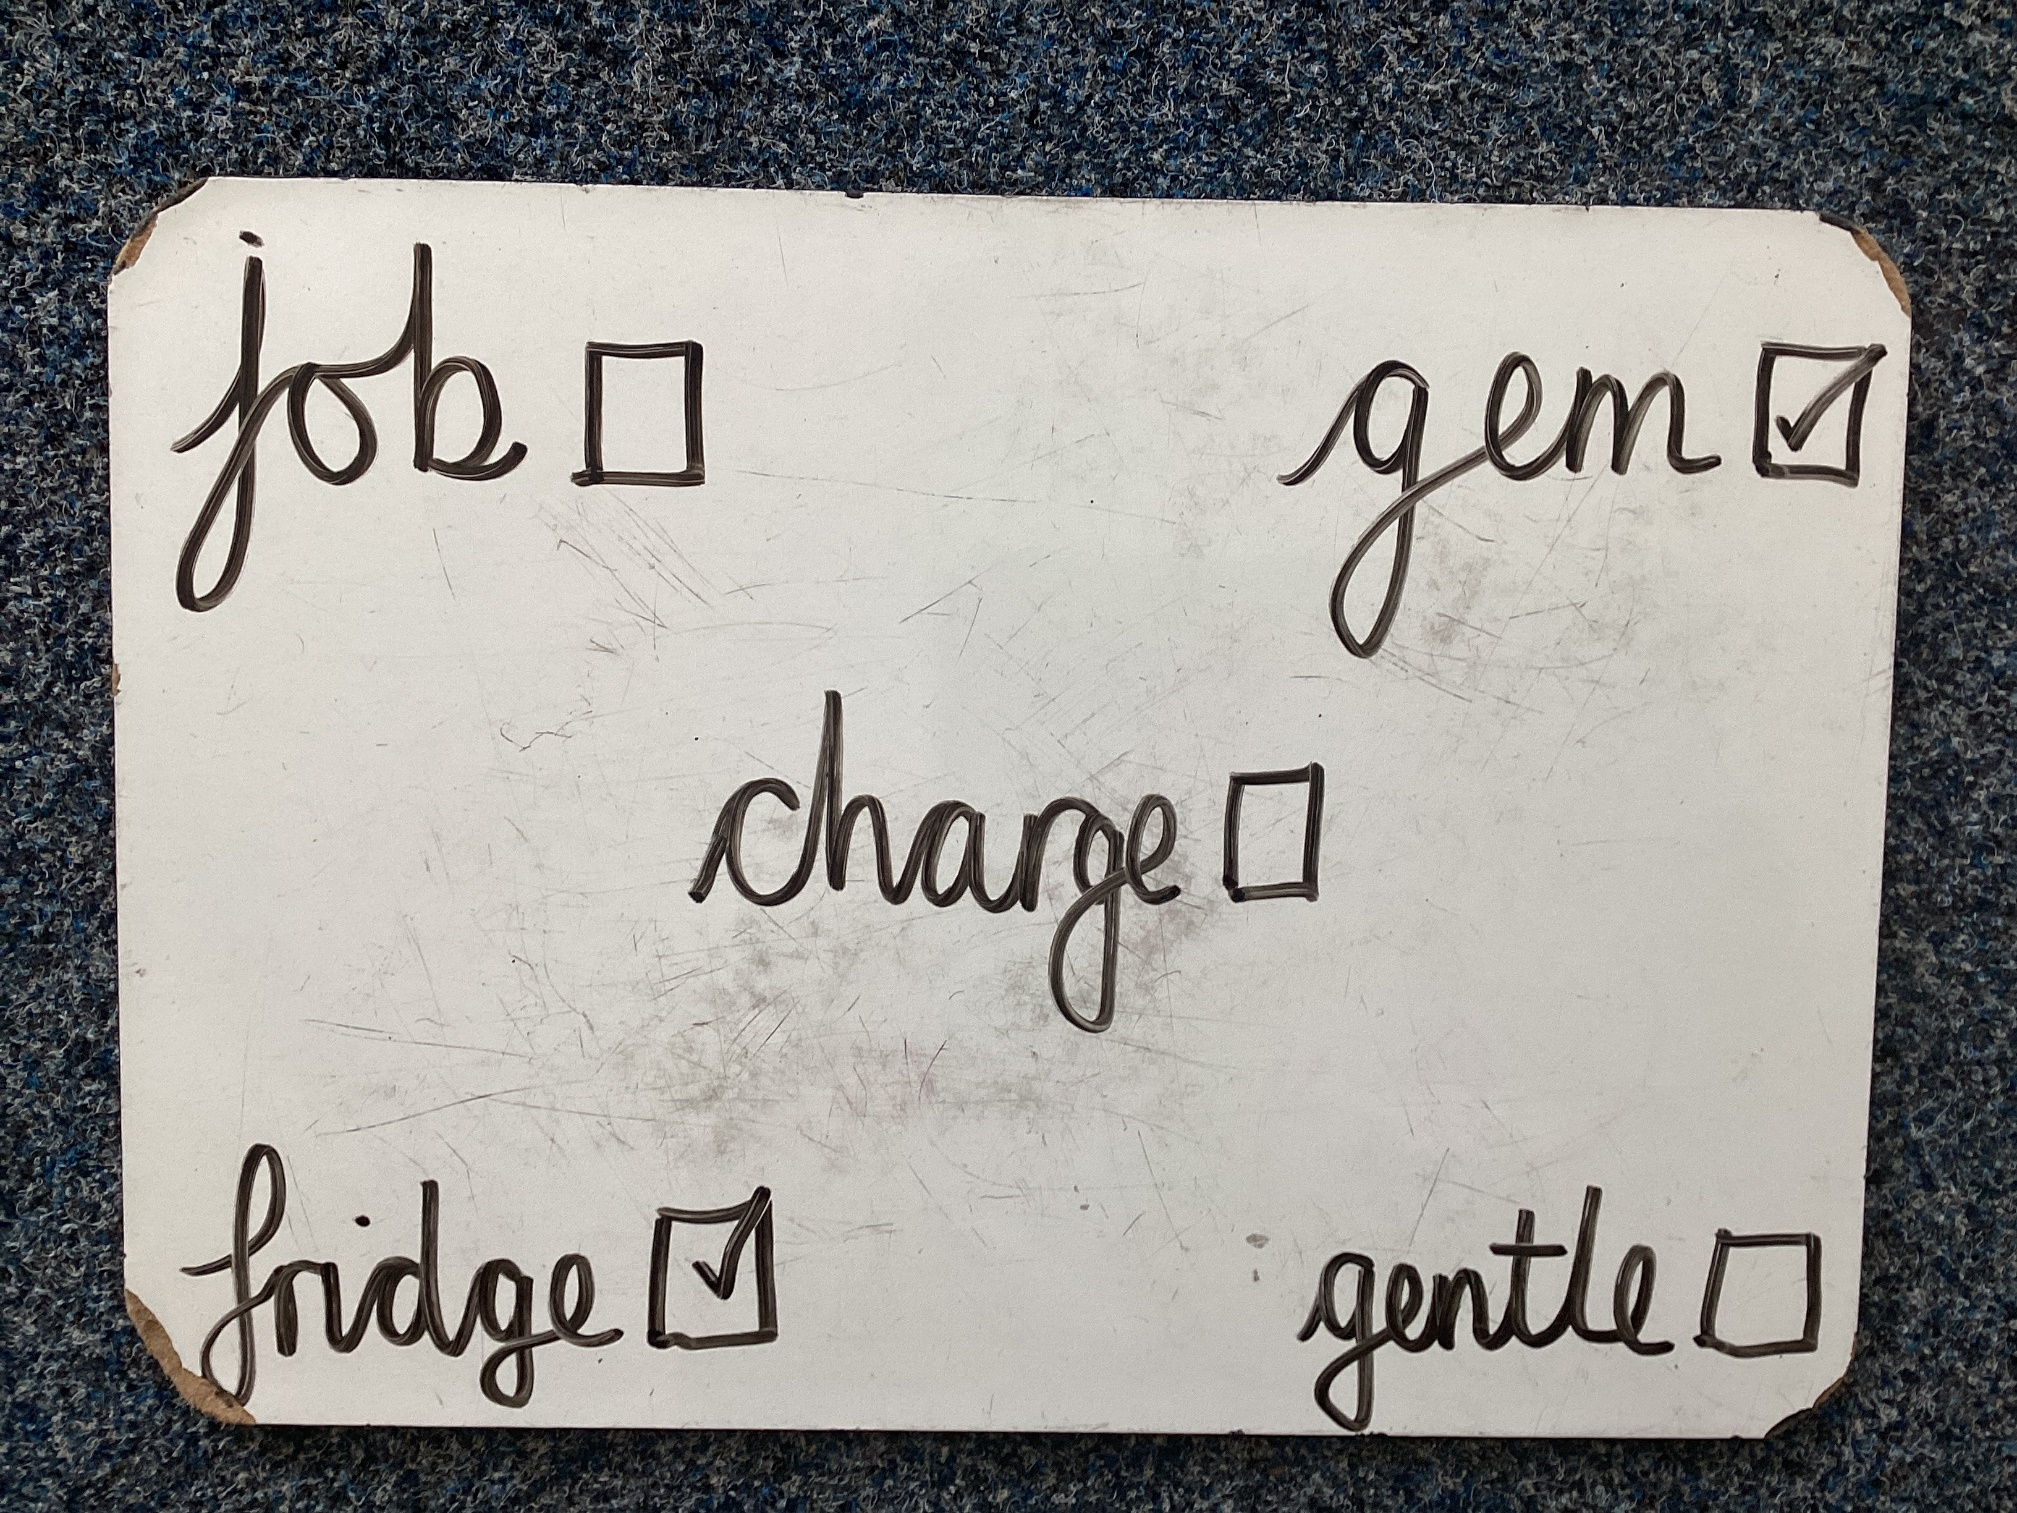 job ☐ gem ☑
charge ☐
fridge ☑ gentle ☐